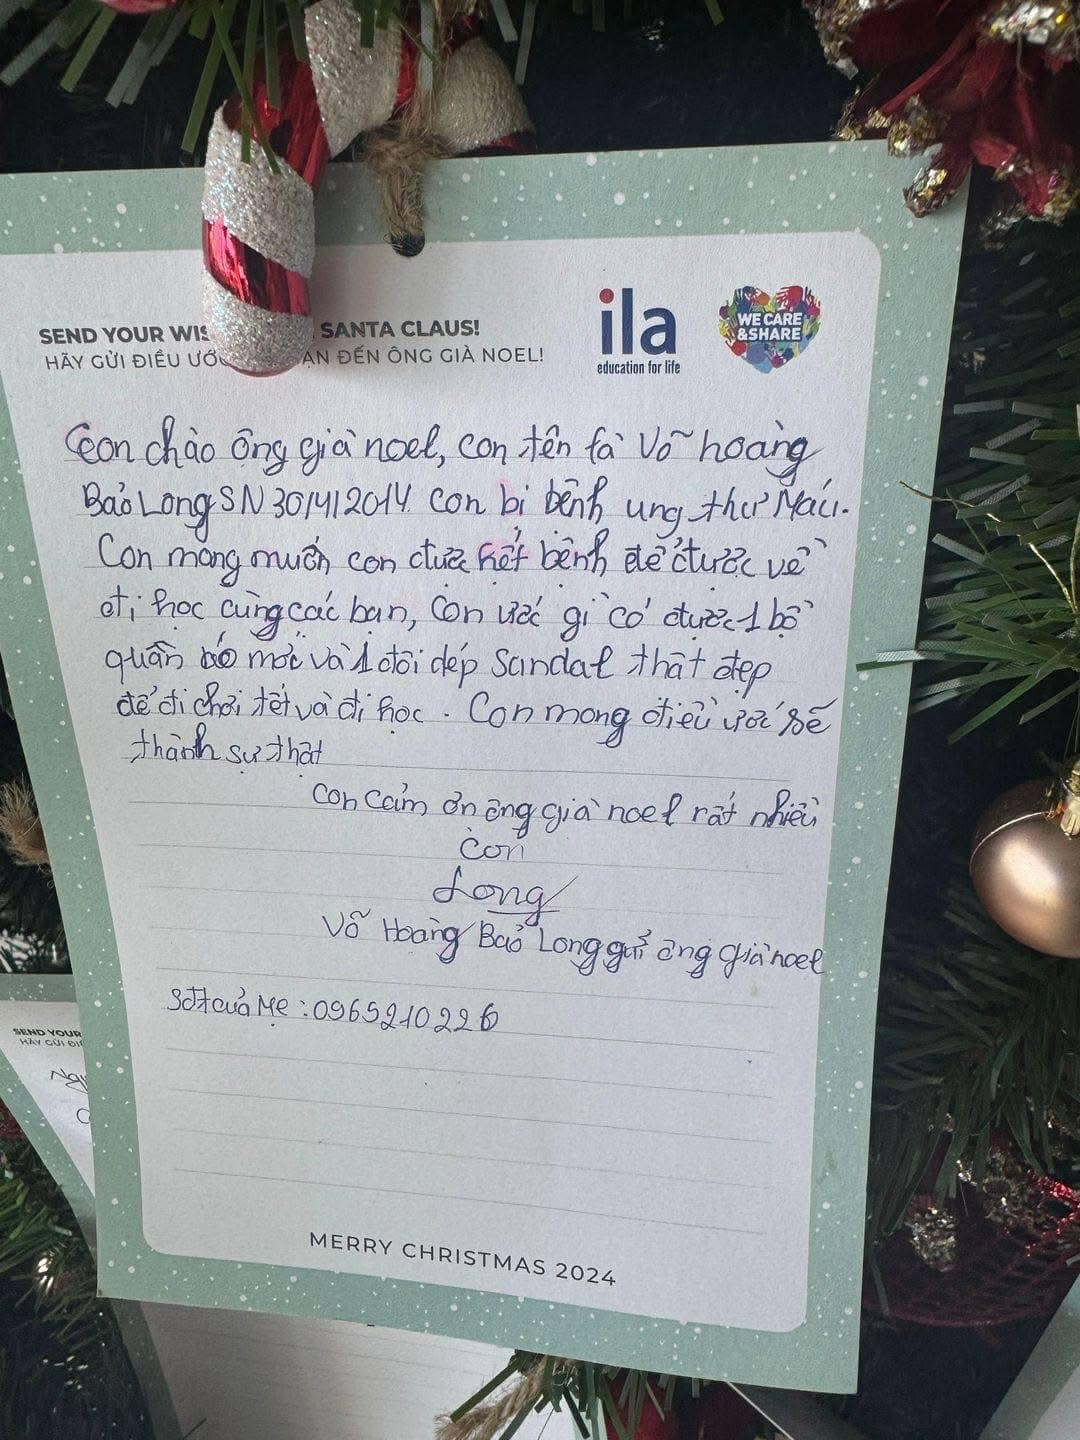 SEND YOUR WIS SANTA CLAUS!
HÃY GỬI ĐIỀU ƯỚ ẠN ĐẾN ÔNG GIÀ NOEL!
ila
education for life
WE CARE
&SHARE
Con chào ông già noel, con tên là Võ hoàng
Bảo Long SN 30/4/2014. Con bị bệnh ung thư Máu.
Con mong muốn con được hết bệnh để được về
đi học cùng các bạn, Con ước gì có được 1 bộ
quần áo mới và 1 đôi dép Sandal thật đẹp
để đi chơi tết và đi học. Con mong điều ước sẽ
thành sự thật
Con cảm ơn ông già noel rất nhiều
Con
Long
Võ Hoàng Bảo Long gửi ông già noel
Sđt của Mẹ: 0965210226
MERRY CHRISTMAS 2024
SEND YOUR
HÃY GỬI ĐI